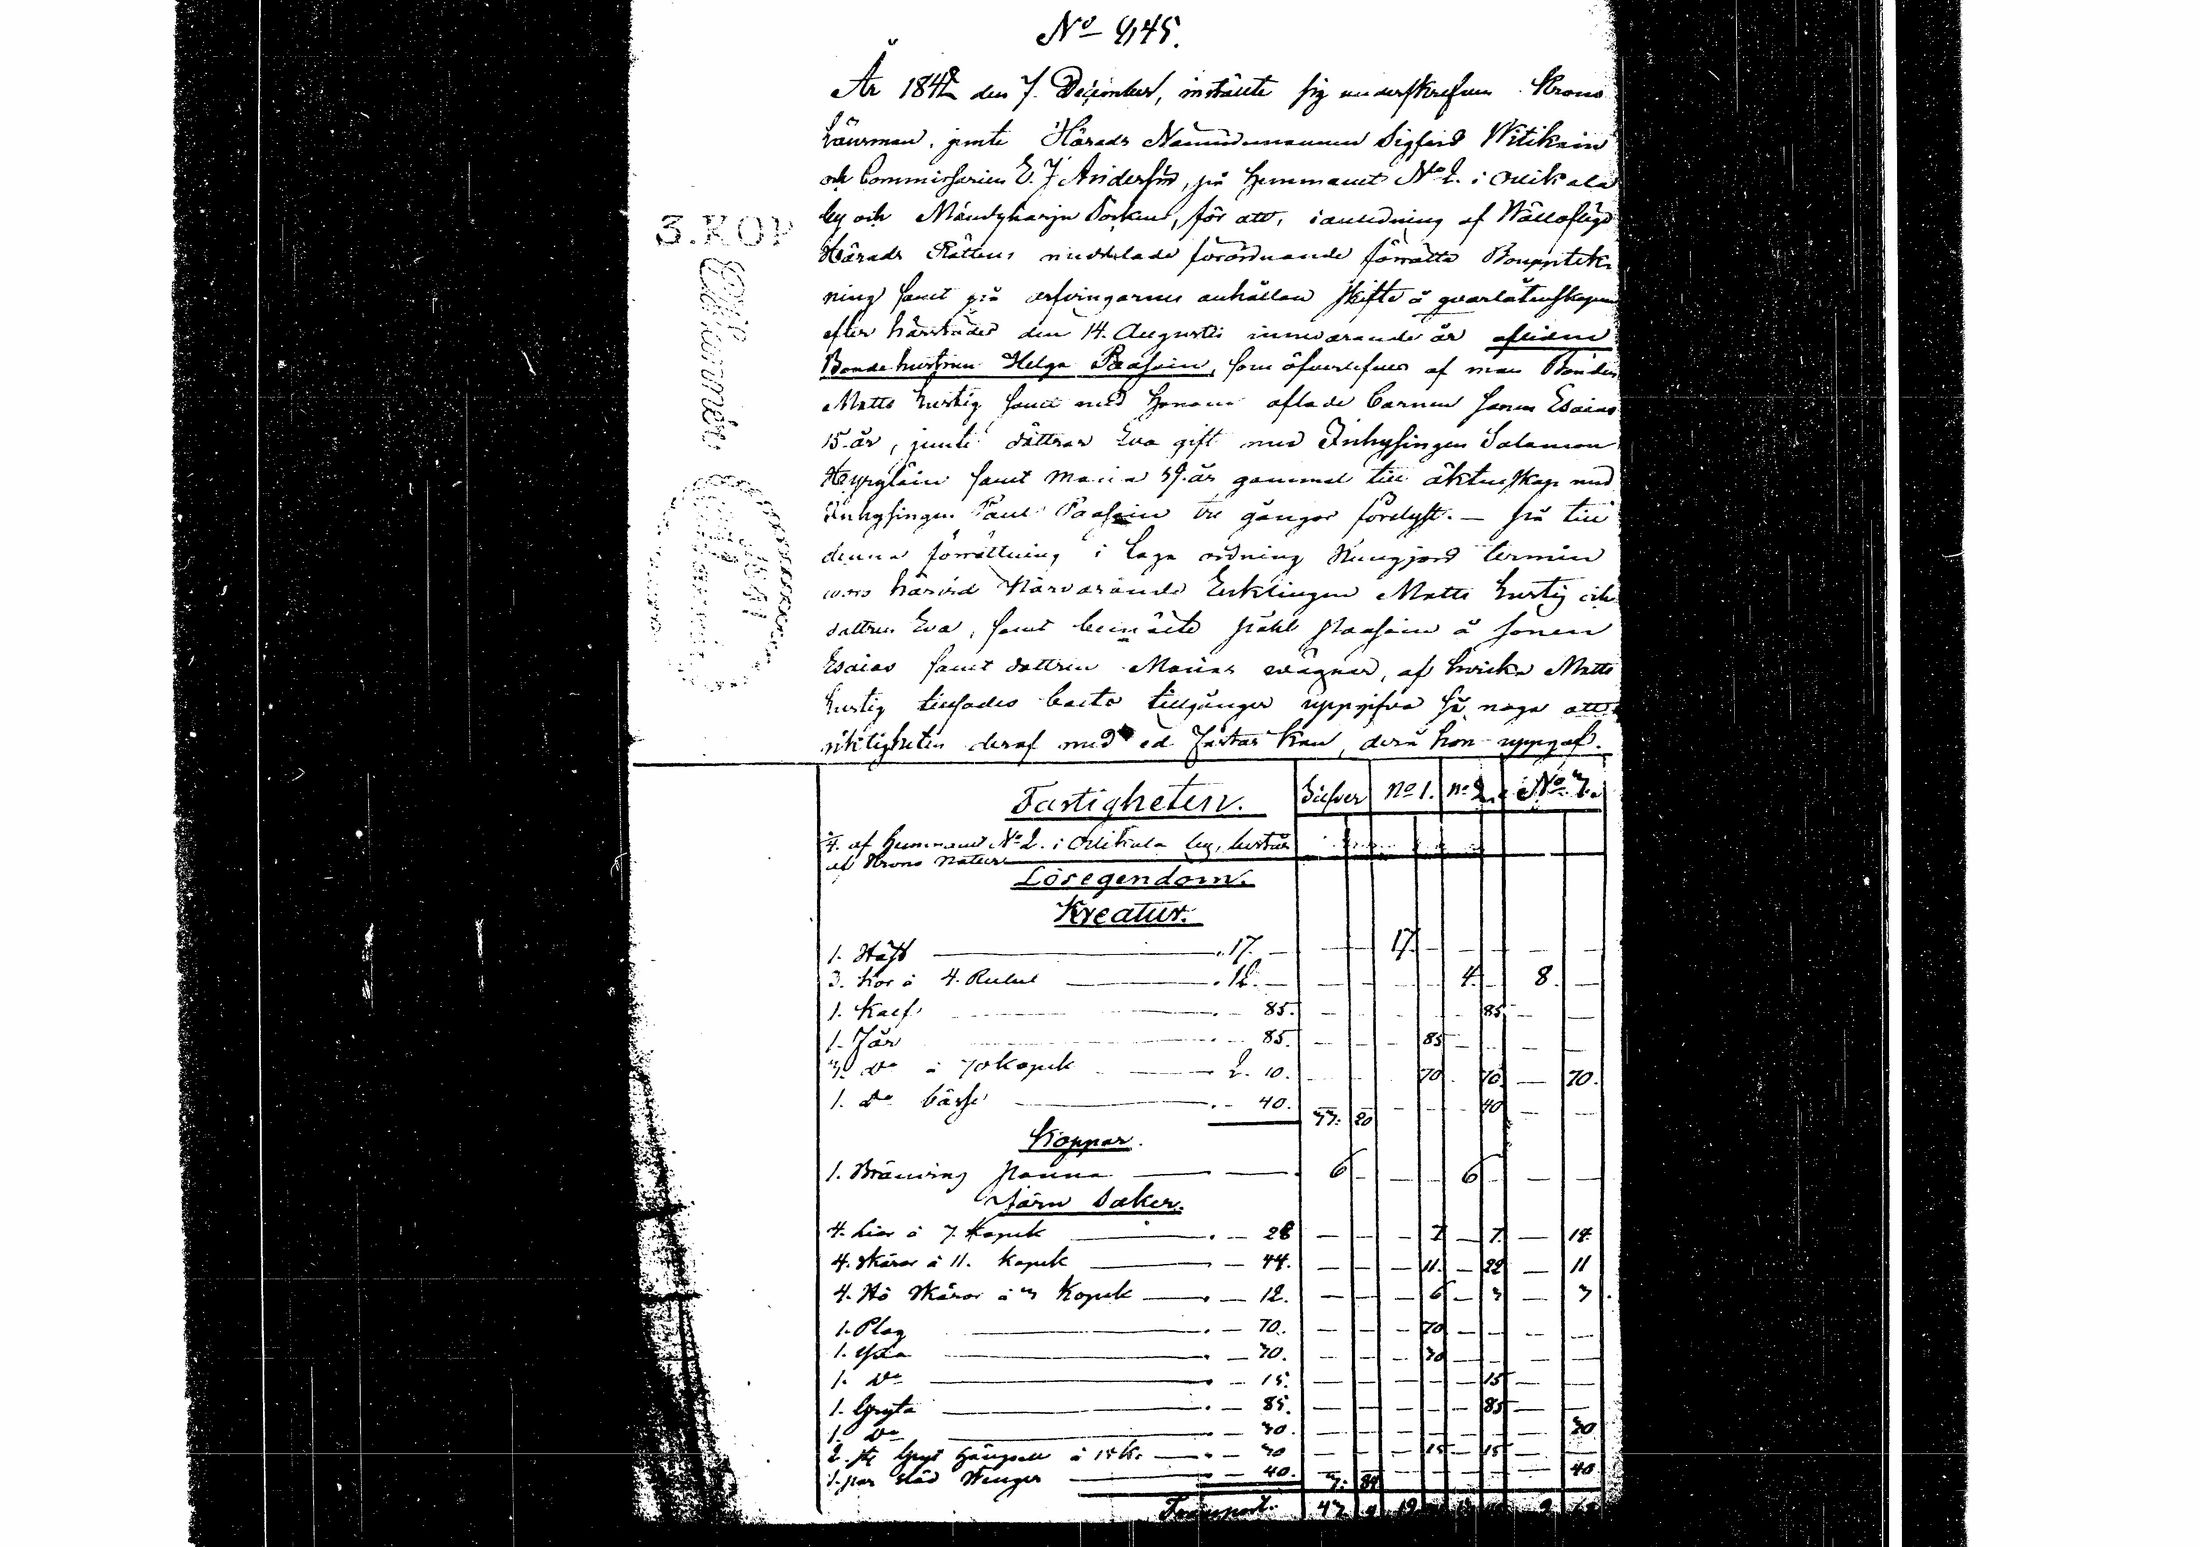 No 445.
År 1842 den 7. December, instälte sig underskrefven Krono
Länsman, jemte Härads Nämndemannen Sigfrid Witikain
och Commissarien E. J. Andersin, på hemmanet No 2. i Ollikala
by och Mändyharju Socken, för att, i anledning af Wälloflige
Härads Rättens meddelade förordnande förrätta Bouppteck-
ning samt på arfvingarnes anhållan skifte å qvarlåtenskapen
efter härstädes den 14. Augusti innevarande år aflidne
Bondehustrun Helga Paasoin, som öfverlefves af man Bonden
Matts Hurtig samt med honom aflade barnen sonen Esaias
15. år, jemte döttrar Eva gift med Inhysingen Salomon
samt Maria år gammal till äktenskap med
Inhysingen Paul Paasoin tre gånger förelyst. — på till
denna förrättning i laga ordning kungjord termin
woro härvid närvarande Enklingen Matts Hurtig och
dottren Eva, samt bemälte Påhl Paasoin å sonen
Esaias samt dottren Marias vägnar, af hvilka Matts
Hurtig tillsades boets tillgångar uppgifva så noga att
riktigheten deraf med ed fästas kan, derå hon uppgaf.
3. KOP
Fastigheten. Silfver No 1. No 2. No 3.
af hemmanet No 2. i Ollikala by,
af Krono natur
Lösegendom.
Kreatur.
1. Häst — 17. — — 17. — — — —
3. Kor à 4. Rubel — 12. — — — 4. — 8. —
1. Kalf — 85. — — 85 — —
1. Får — 85. — — 85 — — —
3. Do à 70 Kopek — 2. 10. 70 70 — 70.
1. Do bässe — 40. 33. 20 — 40 — —
Koppar.
1. Bränvins Panna — 6 — — 6 — — —
Järn Saker.
4. Liar à 7. Kopek — 28 — — 7 — 7. — 14.
4. Skäror à 11. Kopek — 44. — — 11. — 22 — 11
4. Hö Skäror à 3 Kopek — 12. — — 6 — 3 — 3
1. Plog — 70. — — 70 — — —
1. Yxa — 30. — — 30 — — —
1. Do — 15. — — — 15 — —
1. Gryta — 85. — — — 85 — —
1. Do — 30. 30
2. st. à 15 K. — 30 — — 15 15 — —
1. par — 40. 3. 84 — — — 40
Transport. 43. 4 19